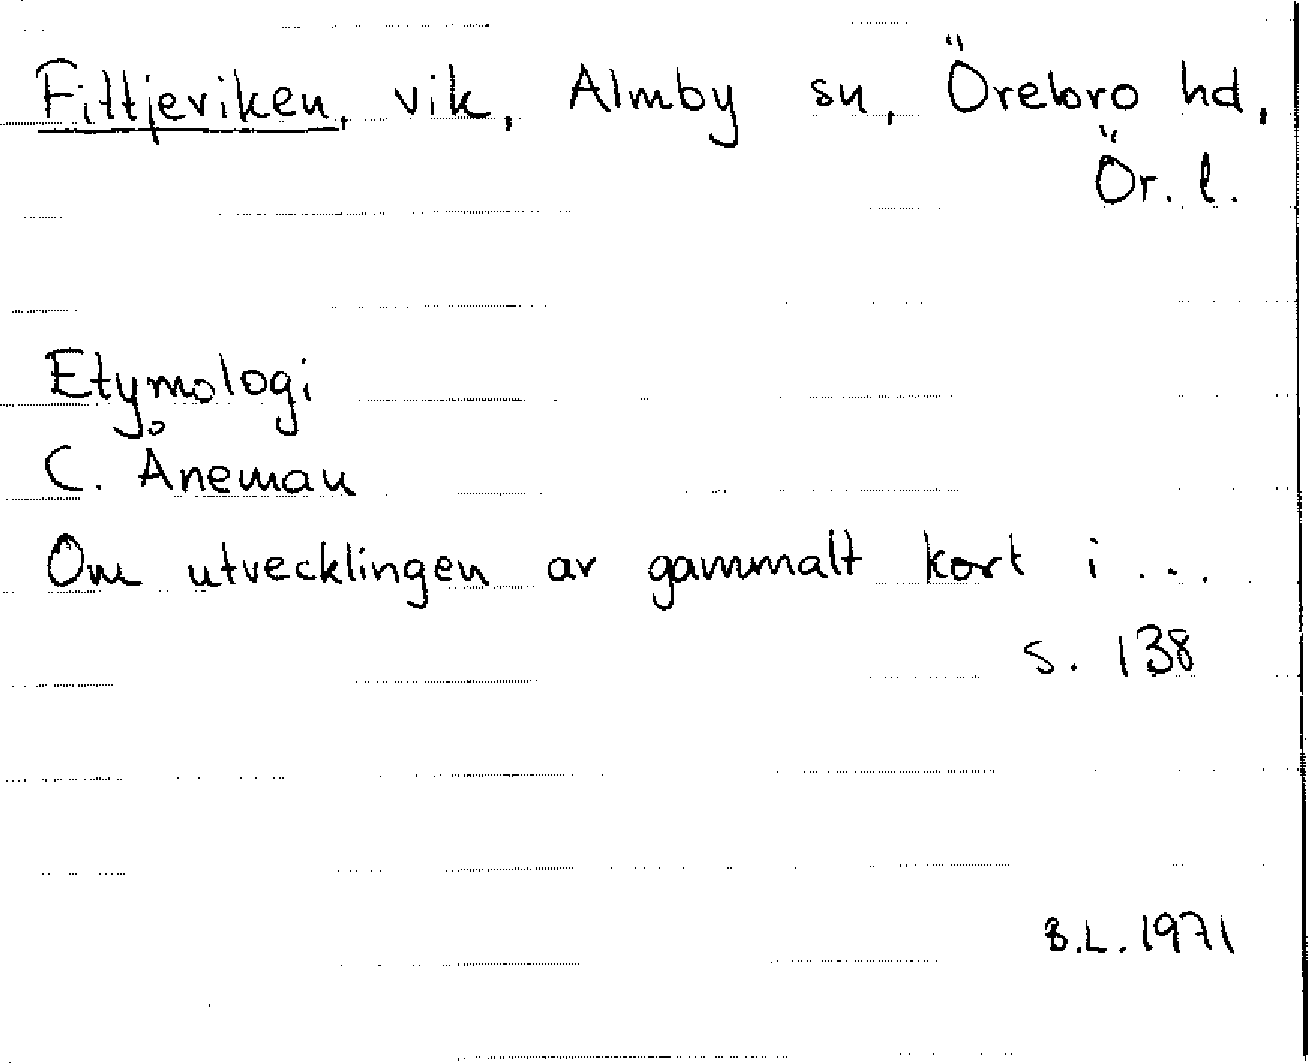 Fittjeviken, vik, Almby sn, Örebro hd,
Ör. l.
Etymologi
C. Åneman
Om utvecklingen av gammalt kort i ...
s. 138
B.L. 1971